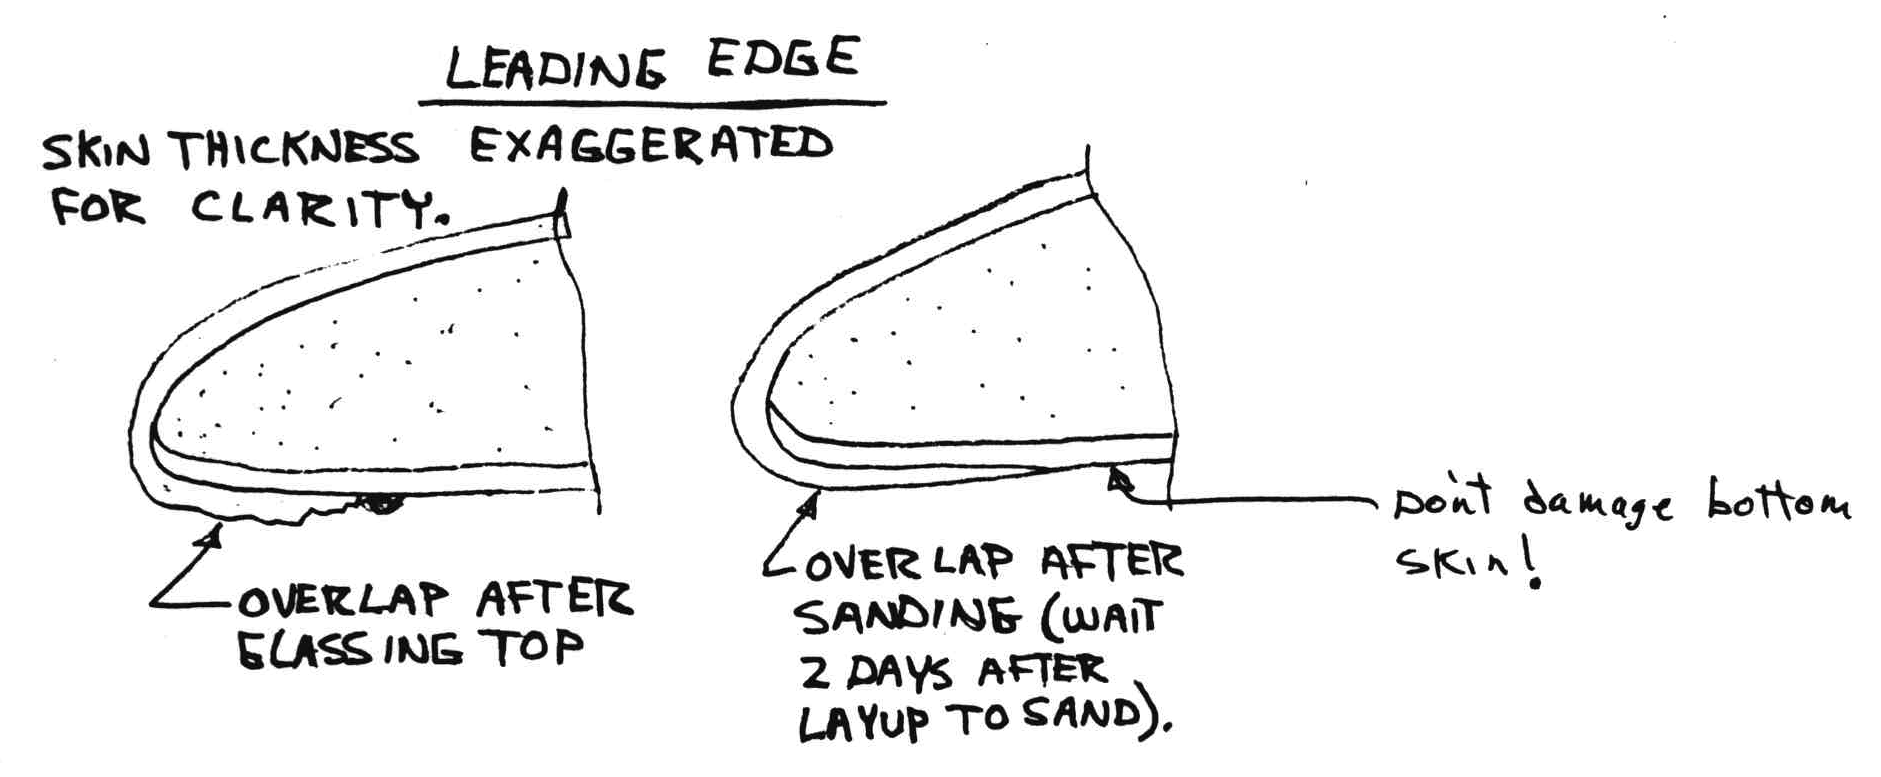 LEADING EDGE
SKIN THICKNESS EXAGGERATED
FOR CLARITY.
OVERLAP AFTER
GLASSING TOP
OVERLAP AFTER
SANDING (WAIT
2 DAYS AFTER
LAYUP TO SAND).
Don't damage bottom
skin!